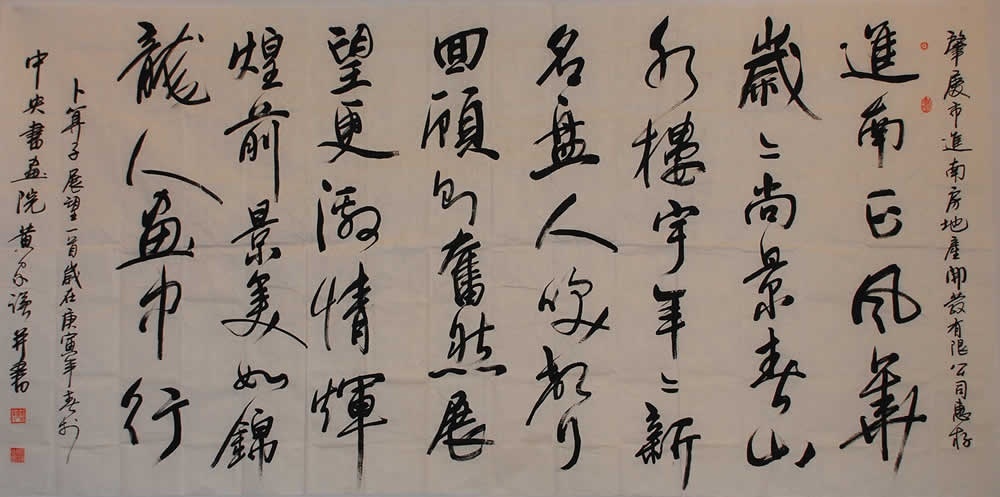 肇慶市進南房地產開發有限公司惠存
進南正風華
歲々尚景春山
水樓宇年々新
名盘人咲
回顧即奮然展
望更激情輝
煌前景美如錦
龍人画中行
卜算子展望一首歲在庚寅年春於
中央書画院黄家并書